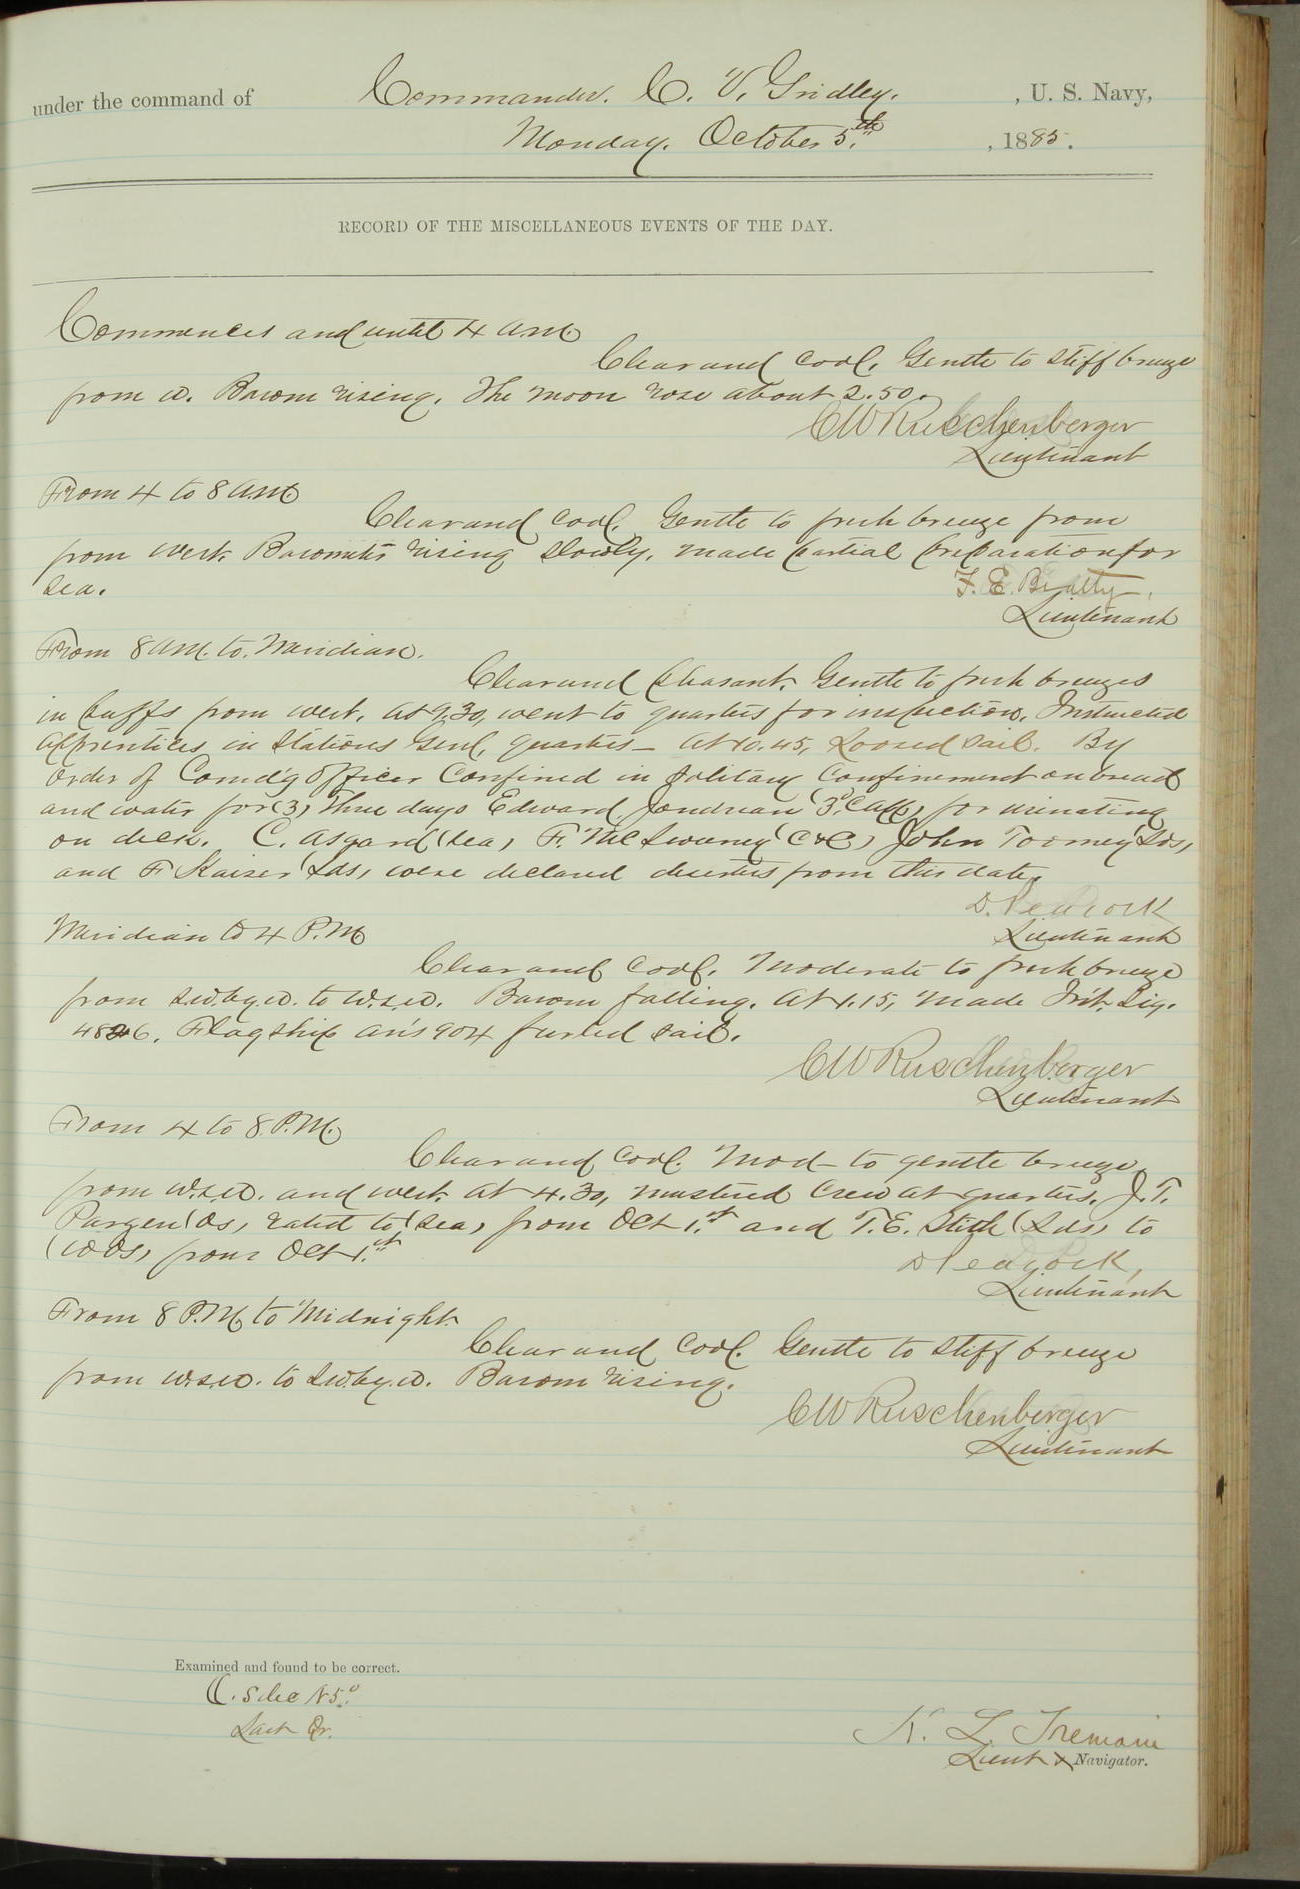 under the command of Commander. C. V. Gridley. , U. S. Navy,
Monday. October 5.th , 1885.
RECORD OF THE MISCELLANEOUS EVENTS OF THE DAY.
Commences and until 4 A.M.
Clear and cool. Gentle to stiff breeze
from W. Barom rising. The moon rose about 2.50.
CW Ruschenberger
Lieutenant
From 4 to 8 A.M.
Clear and cool. Gentle to fresh breeze from
from West. Barometer rising slowly. Made partial preparation for
Sea.
F. E. Beatty.
Lieutenant
From 8 A.M. to Meridian.
Clear and pleasant. Gentle to fresh breezes
in puffs from West. At 9.30, went to quarters for inspection. Instructed
Apprentices in Stations Genl. quarters- At 10.45, Loosed Sail. By
Order of Comd'g Officer Confined in Solitary Confinement on bread
and water for (3) three days Edward for urinating
on deck. C. Asgard (Sea) F. McSweeney (C&C) John Toomey (Lds)
and F Kaiser (Lds) were declared deserters from this date.
D. Peacock
Lieutenant
Meridian to 4 P.M.
Clear and cool. Moderate to fresh breeze
from S.W. by W. to W.S.W. Barom falling. At 1.15, made Int. Sig.
Flagship an's 904 furled sail.
CW Ruschenberger
Lieutenant
From 4 to 8 P.M.
Clear and cool. Mod- to gentle breeze
from W.S.W. and West. At 4.30, mustered Crew at quarters. J. T.
Pargen (Os) rated to (Sea) from Oct 1.st and T. E. Stith (Lds) to
(Os) from Oct 1.st
D Peacock,
Lieutenant
From 8 P.M. to Midnight
Clear and cool. Gentle to stiff breeze
from W.S.W. to S.W. by W. Barom rising.
CW Ruschenberger
Lieutenant
Examined and found to be correct.
Last Qr.
K. L. Tremain
Lieut & Navigator.